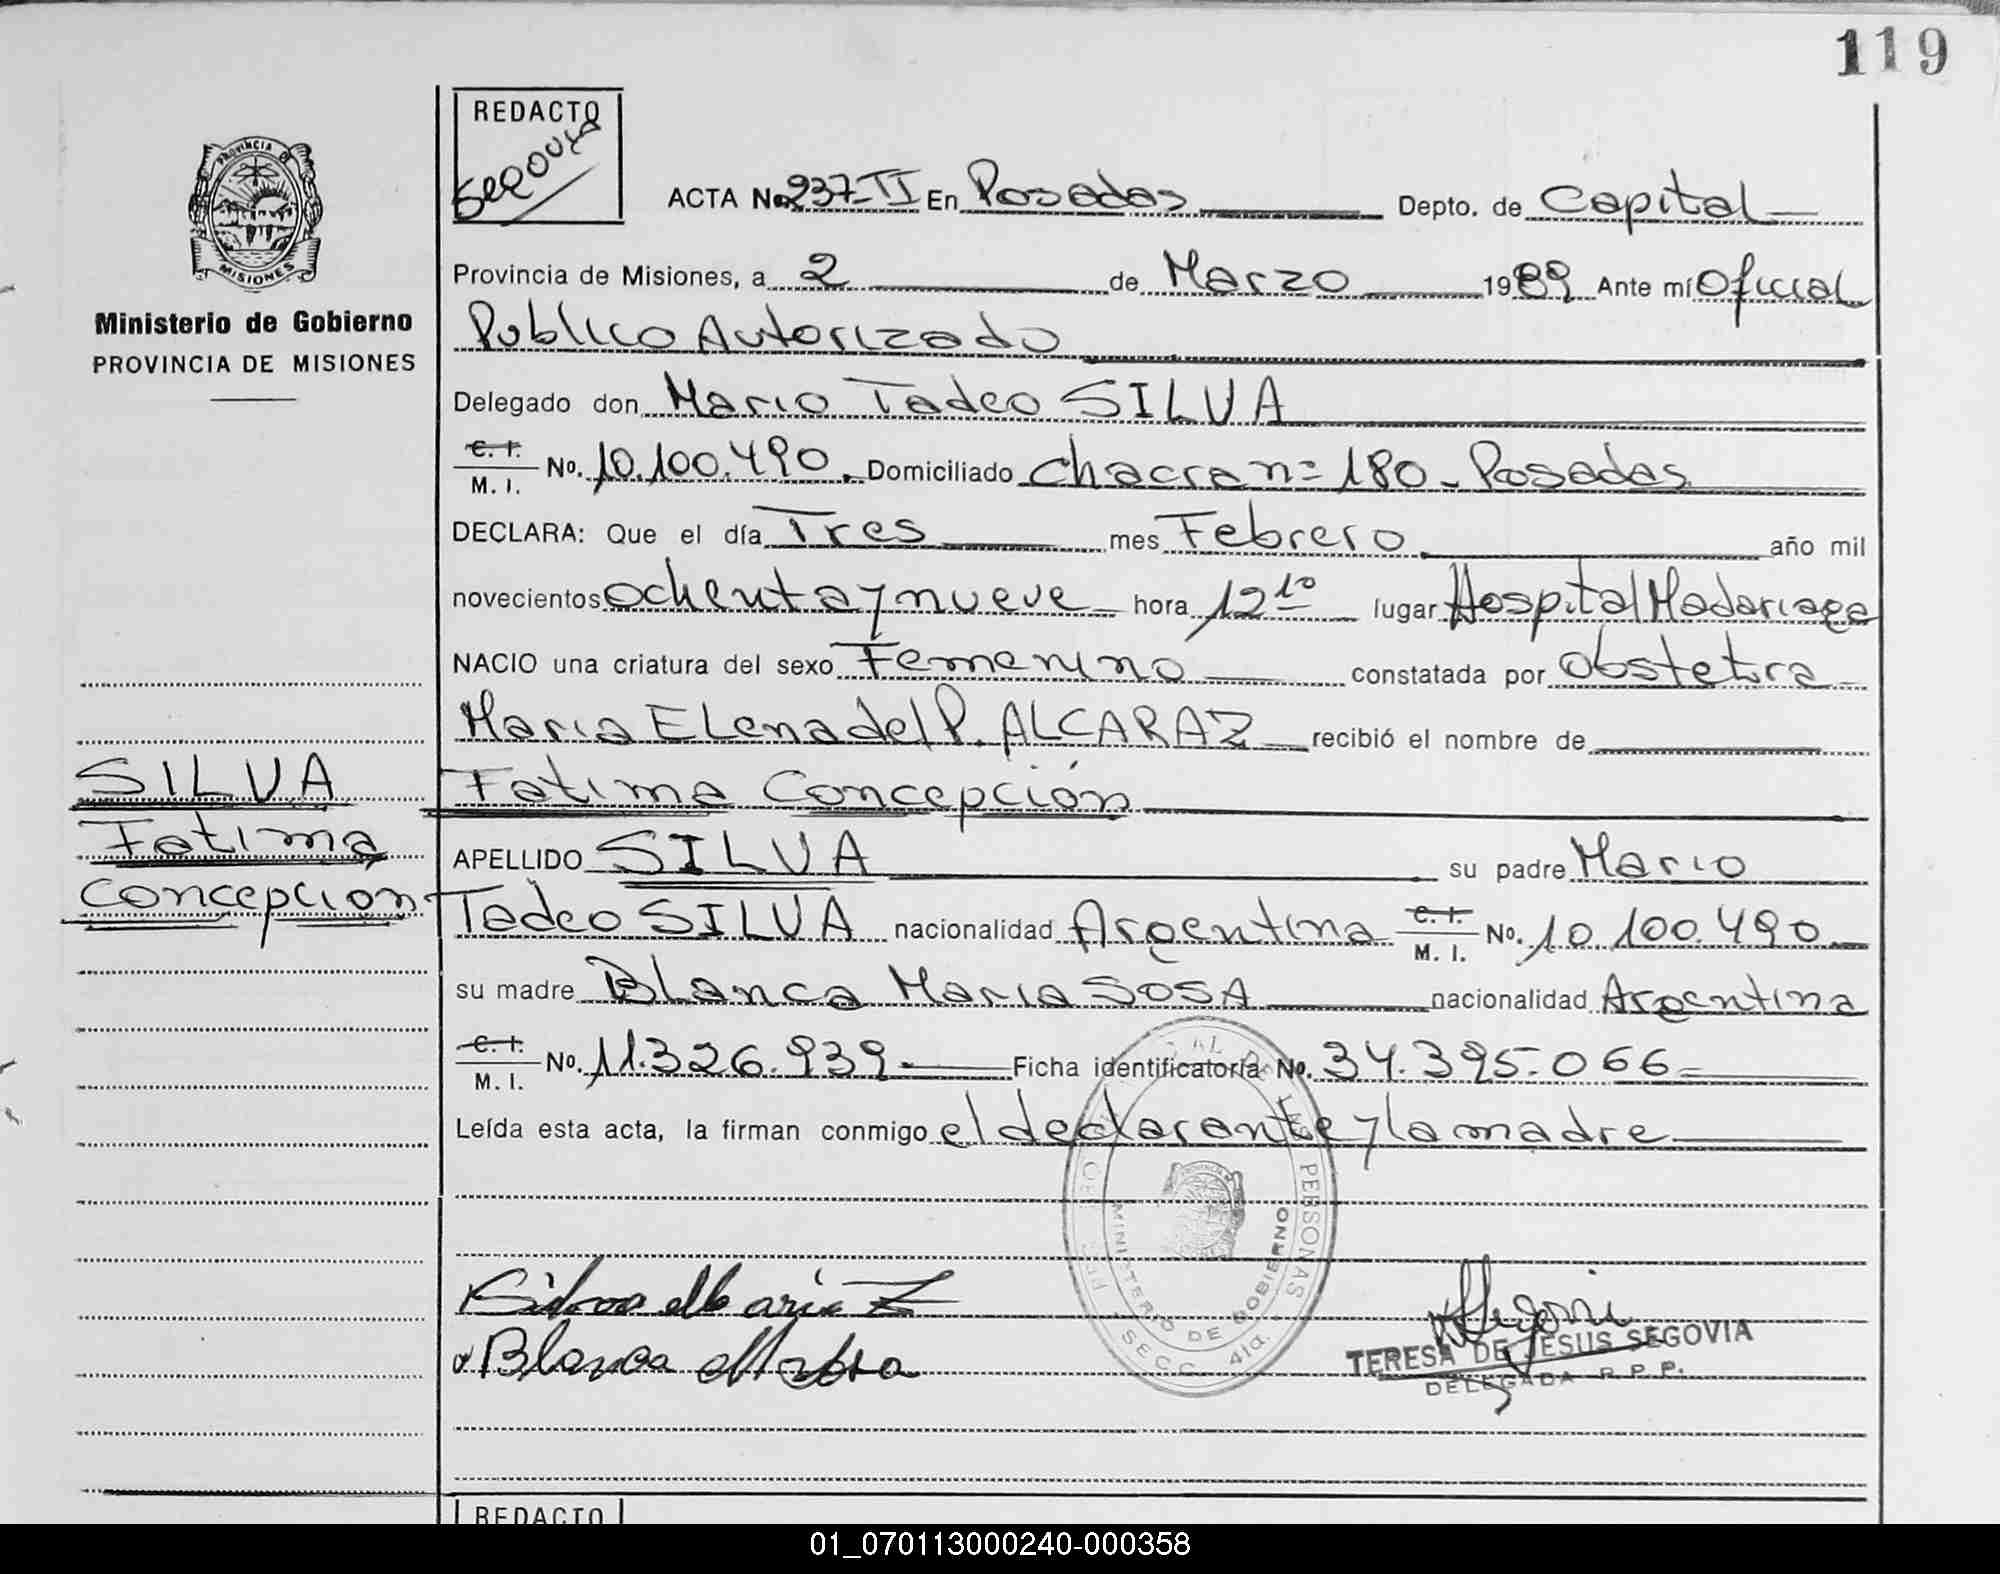 119
REDACTO
Segovia
ACTA No. 237-II En Posadas Depto. de Capital
PROVINCIA DE
MISIONES
Ministerio de Gobierno
PROVINCIA DE MISIONES
Provincia de Misiones, a 2 de Marzo 1989 Ante mí Oficial
Publico Autorizado
Delegado don Mario Tadeo SILVA
C. I.
M. I. No. 10.100.490. Domiciliado Chacra n= 180 - Posadas
DECLARA: Que el día Tres mes Febrero año mil
novecientos ochenta y nueve hora 12 10 lugar Hospital Madariaga
NACIO una criatura del sexo Femenino constatada por obstetra
Maria Elena del P. ALCARAZ recibió el nombre de
Fatima Concepción
SILVA
Fatima
Concepcion
APELLIDO SILVA su padre Mario
Tadeo SILVA nacionalidad Argentina C. I. M. I. No. 10.100.490
su madre Blanca Maria SOSA nacionalidad Argentina
C. I.
M. I. No. 11.326.939 Ficha identificatoria No. 34.395.066
Leída esta acta, la firman conmigo el declarante y la madre
PERSONAS
MINISTERIO DE GOBIERNO
SECC. 41a.
TERESA DE JESUS SEGOVIA
DELEGADA R. P. P.
REDACTO
01_070113000240-000358